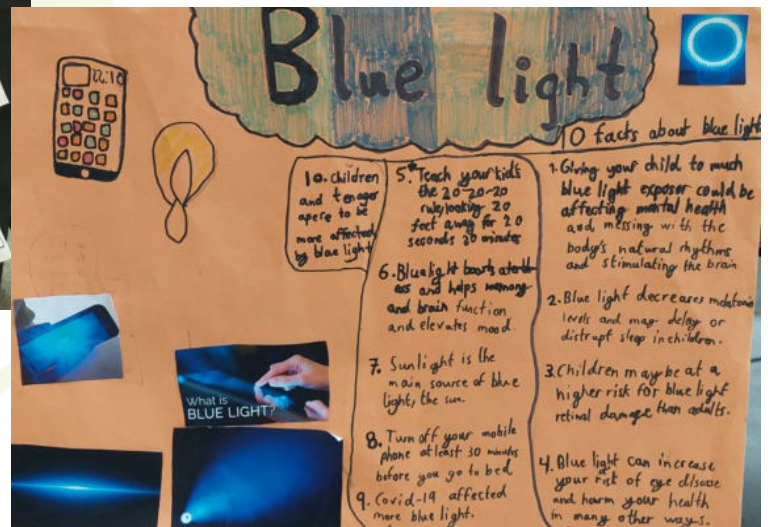 Blue light
22:10
10 facts about blue light
1. Giving your child to much
blue light exposer could be
affecting mental health
and messing with the
body's natural rhythms
and stimulating the brain
2. Blue light decreases melatonin
levels and may delay or
distrupt sleep in children.
3. Children may be at a
higher risk for blue light
retinal damage than adults.
4. Blue light can increase
your risk of eye disease
and harm your health
in many other ways.
5. Teach your kids
the 20-20-20
rule, looking 20
feet away for 20
seconds 20 minutes
6. Blue light boosts
and helps memory
and brain function
and elevates mood.
7. Sunlight is the
main source of blue
light, the sun.
8. Turn off your mobile
phone at least 30 minutes
before you go to bed
9. Covid-19 affected
more blue light.
10. Children
and tenager
apere to be
more affected
by blue light
What is
BLUE LIGHT?